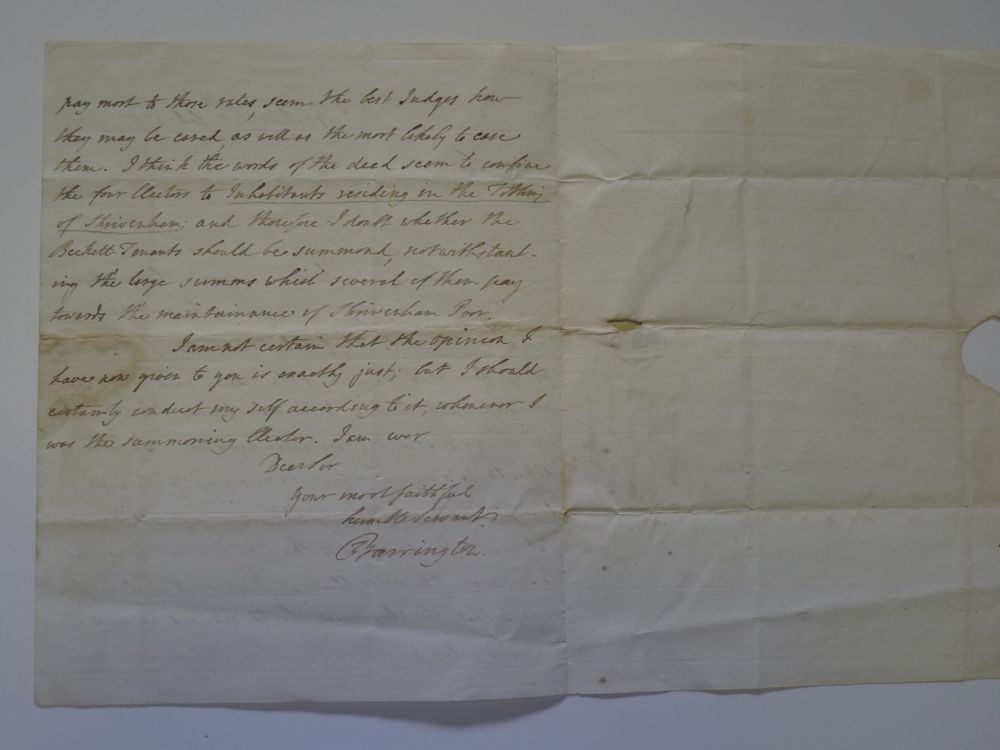 pay most to those rates, seem the best Judges how
they may be eased, as well as the most likely to ease
them. I think the words of the deed seem to confine
the four Electors to Inhabitants residing in the Tithing
of Shrivenham; and therefore I doubt whether the
Beckett Tenants should be summond, notwithstand-
ing the large summs which several of them pay
towards the maintainance of Shrivenham Poor.
I am not certain that the opinion I
have now given to you is exactly just; but I should
certainly conduct my self according to it, whenever I
was the summoning Elector. I am ever
Dear Sir
Your most faithful
humble Servant
Barrington.